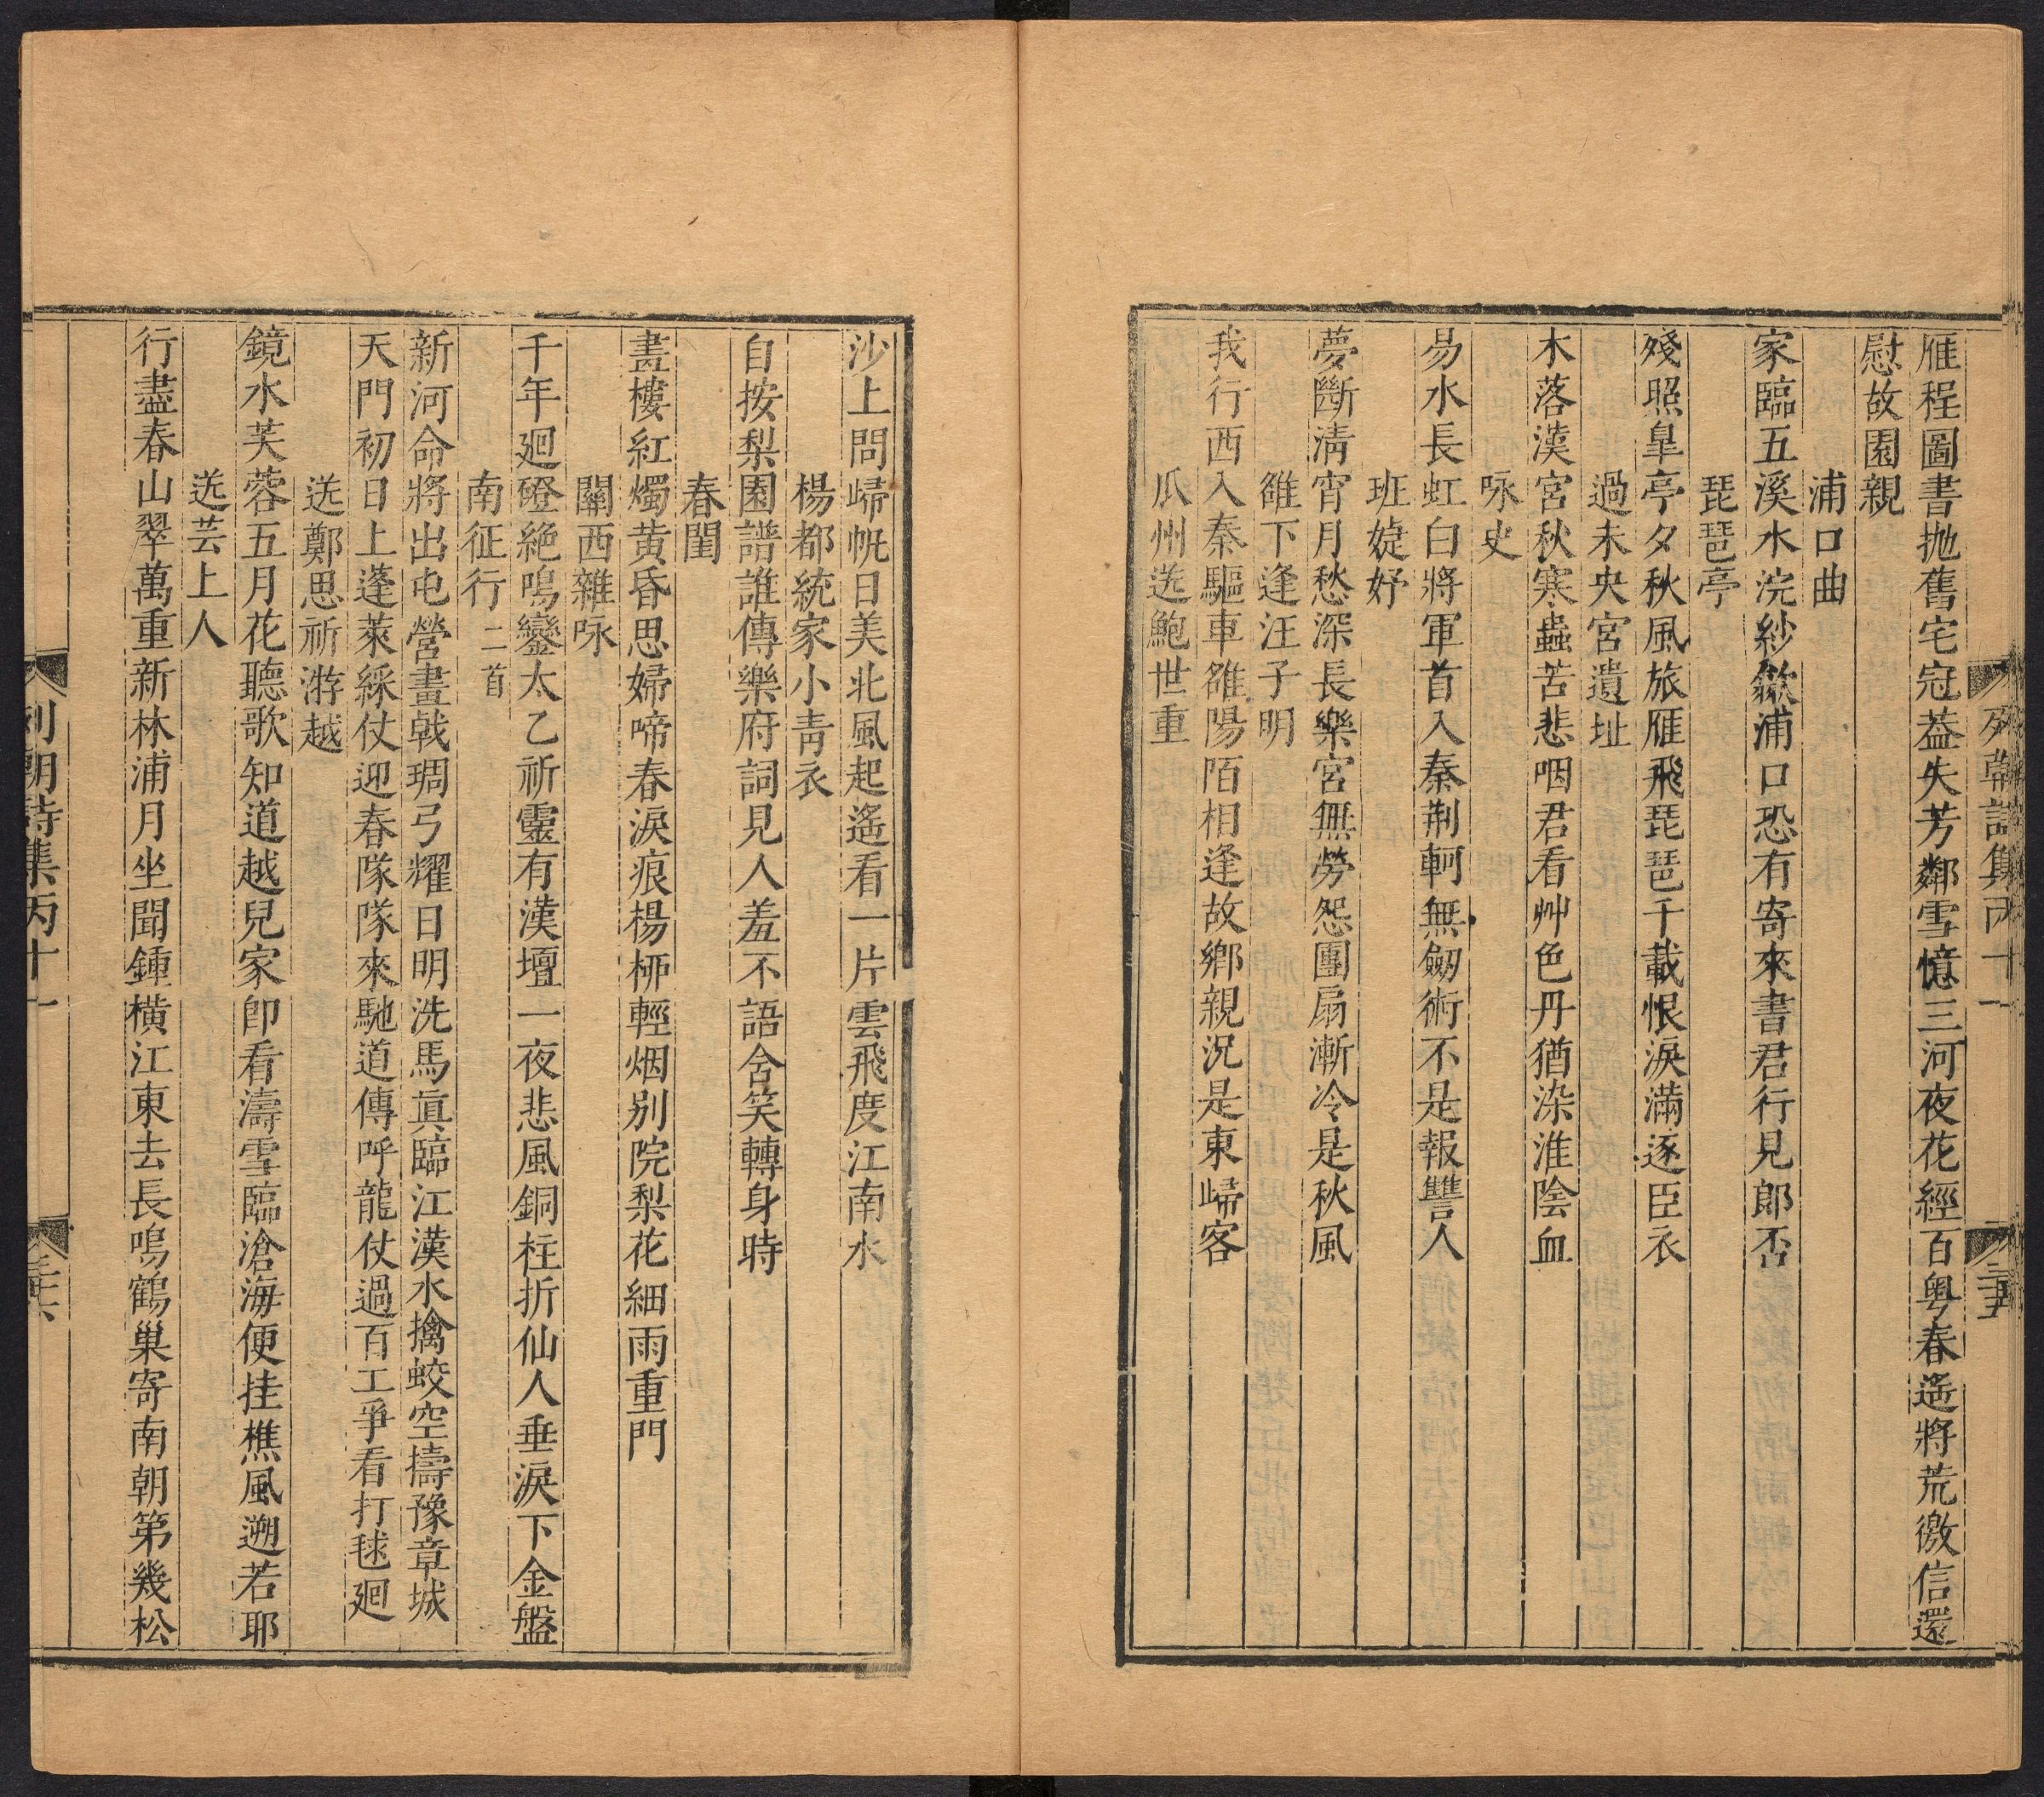 列朝詩集丙十一
三十五
雁程圖書抛舊宅冠葢失芳鄰雪憶三河夜花經百粤春遙將荒徼信還
慰故園親
浦口曲
家臨五溪水浣紗歙浦口恐有寄來書君行見郎否
琵琶亭
殘照皐亭夕秋風旅雁飛琵琶千載恨淚滿逐臣衣
過未央宮遺址
木落漢宮秋寒蟲苦悲咽君看艸色丹猶染淮隂血
咏史
易水長虹白將軍首入秦荆軻無劒術不是報讐人
班婕妤
夢斷淸宵月愁深長樂宮無勞怨團扇漸冷是秋風
雒下逢汪子明
我行西入秦驅車雒陽陌相逢故鄕親況是東歸客
瓜州送鮑世重
沙上問歸帆日美北風起遙看一片雲飛度江南水
楊都統家小靑衣
自按梨園譜誰傳樂府詞見人羞不語含笑轉身時
春閨
畫樓紅燭黃昏思婦啼春淚痕楊柳輕烟别院梨花細雨重門
關西雜咏
千年廻磴絕鳴鑾太乙祈靈有漢壇一夜悲風銅柱折仙人垂淚下金盤
南征行二首
新河命將出屯營畫戟琱弓耀日明洗馬眞臨江漢水擒蛟空擣豫章城
天門初日上蓬萊綵仗迎春隊隊來馳道傳呼龍仗過百工爭看打毬廻
送鄭思祈游越
鏡水芙蓉五月花聽歌知道越兒家卽看濤雪臨滄海便挂樵風遡若耶
送芸上人
行盡春山翠萬重新林浦月坐聞鍾橫江東去長鳴鶴巢寄南朝第幾松
列朝詩集丙十一
三十六